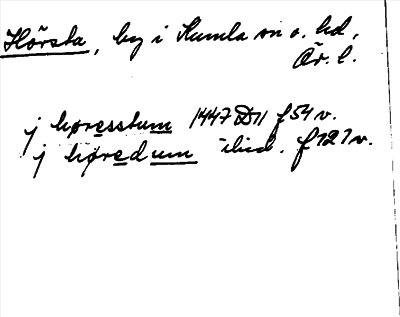 Hörsta, by i Kumla sn o. hd,
Är. l.
j høresstum 1447 D11 f 54 v.
j høredum ibid. f 121 v.